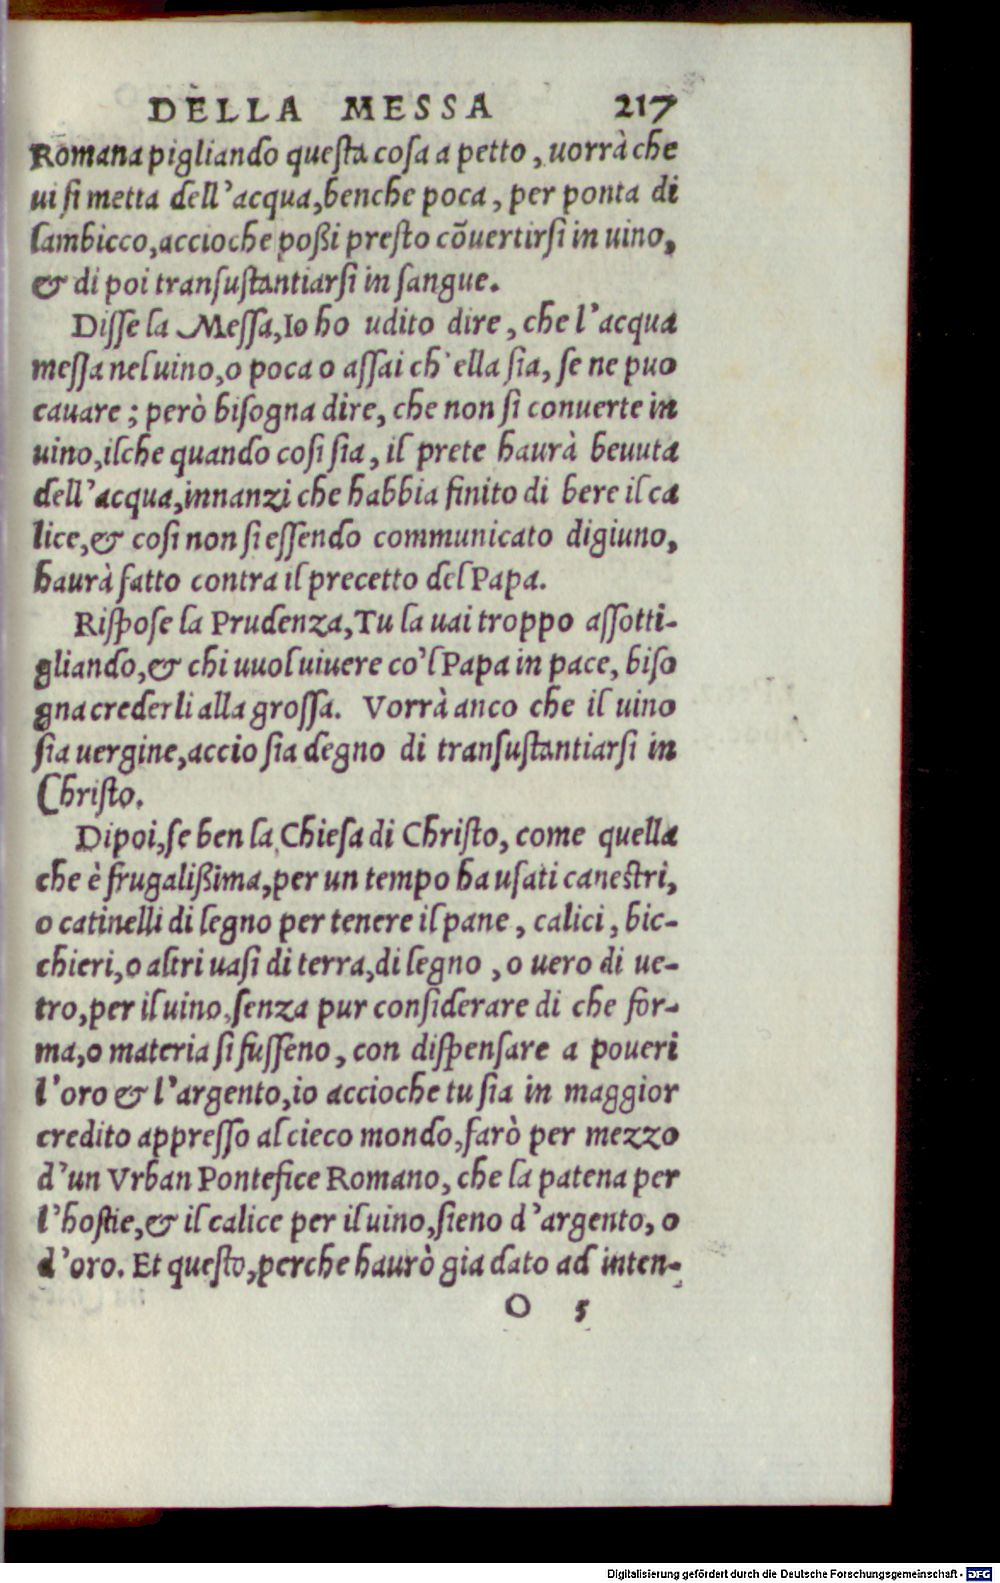 DELLA MESSA 217
Romana pigliando questa cosa a petto, vorrà che
ui si metta dell'acqua, benche poca, per ponta di
lambicco, accioche poßi presto cōuertirsi in uino,
& di poi transustantiarsi in sangue.
Disse la Messa, Io ho udito dire, che l'acqua
messa nel uino, o poca o assai ch'ella sia, se ne puo
cauare; però bisogna dire, che non si conuerte in
uino, ilche quando cosi sia, il prete haurà beuuta
dell'acqua, innanzi che habbia finito di bere il ca
lice, & cosi non si essendo communicato digiuno,
haurà fatto contra il precetto del Papa.
Rispose la Prudenza, Tu la uai troppo assotti-
gliando, & chi uuol uiuere co'l Papa in pace, biso
gna crederli alla grossa. Vorrà anco che il uino
sia uergine, accio sia degno di transustantiarsi in
Christo.
Dipoi, se ben la Chiesa di Christo, come quella
che è frugalißima, per un tempo ha usati canestri,
o catinelli di legno per tenere il pane, calici, bic-
chieri, o altri uasi di terra, di legno, o uero di ue-
tro, per il uino, senza pur considerare di che for-
ma, o materia si fusseno, con dispensare a poueri
l'oro & l'argento, io accioche tu sia in maggior
credito appresso al cieco mondo, farò per mezzo
d'un Vrban Pontefice Romano, che la patena per
l'hostie, & il calice per il uino, sieno d'argento, o
d'oro. Et questo, perche haurò gia dato ad inten-
O 5
Digitalisierung gefördert durch die Deutsche Forschungsgemeinschaft - DFG